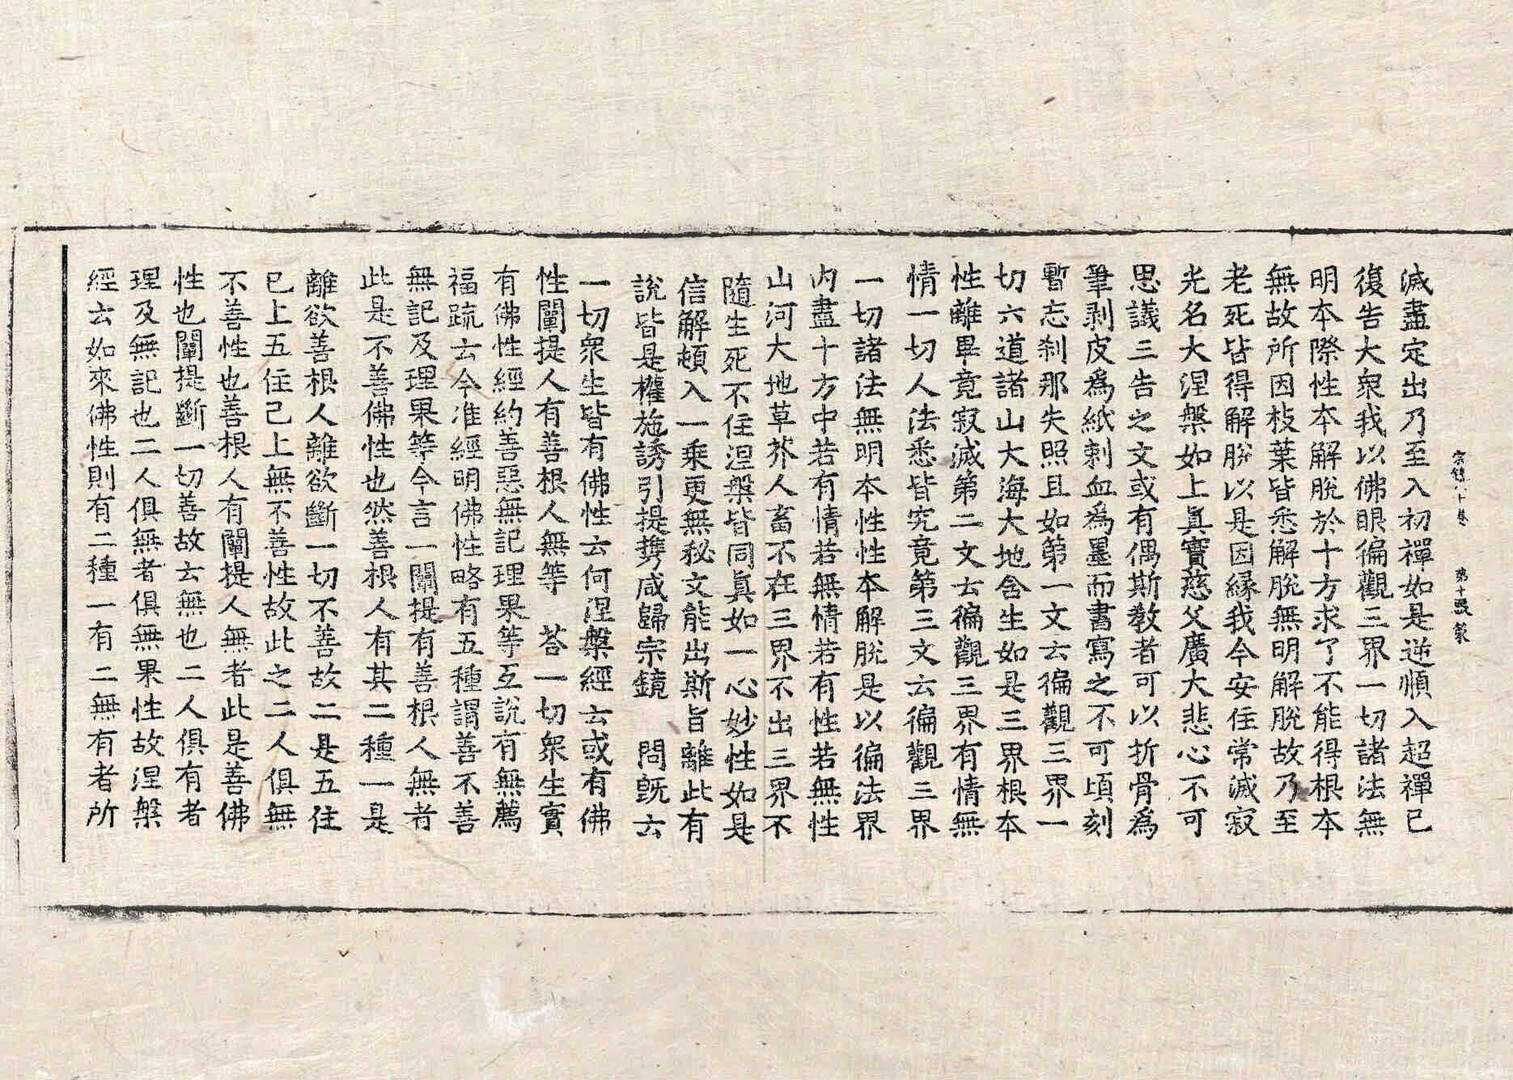 宗鏡 十卷 第十
滅盡定出乃至入初禪如是逆順入超禪已
復告大衆我以佛眼徧觀三界一切諸法無
明本際性本解脫於十方求了不能得根本
無故所因枝葉皆悉解脫無明解脫故乃至
老死皆得解脫以是因緣我今安住常滅寂
光名大涅槃如上眞實慈父廣大悲心不可
思議三告之文或有偶斯敎者可以折骨爲
筆剥皮爲紙刺血爲墨而書寫之不可頃刻
暫忘刹那失照且如第一文云徧觀三界一
切六道諸山大海大地含生如是三界根本
性離畢竟寂滅第二文云徧觀三界有情無
情一切人法悉皆究竟第三文云徧觀三界
一切諸法無明本性性本解脫是以徧法界
内盡十方中若有情若無情若有性若無性
山河大地草芥人畜不在三界不出三界不
隨生死不住涅槃皆同眞如一心妙性如是
信解頓入一乘更無秘文能出斯旨離此有
說皆是權施誘引提携咸歸宗鏡 問旣云
一切衆生皆有佛性云何涅槃經云或有佛
性闡提人有善根人無等 荅一切衆生實
有佛性經約善惡無記理果等互說有無薦
福䟽云今准經明佛性略有五種謂善不善
無記及理果等今言一闡提有善根人無者
此是不善佛性也然善根人有其二種一是
離欲善根人離欲斷一切不善故二是五住
已上五住已上無不善性故此之二人俱無
不善性也善根人有闡提人無者此是善佛
性也闡提斷一切善故云無也二人俱有者
理及無記也二人俱無者俱無果性故涅槃
經云如來佛性則有二種一有二無有者所